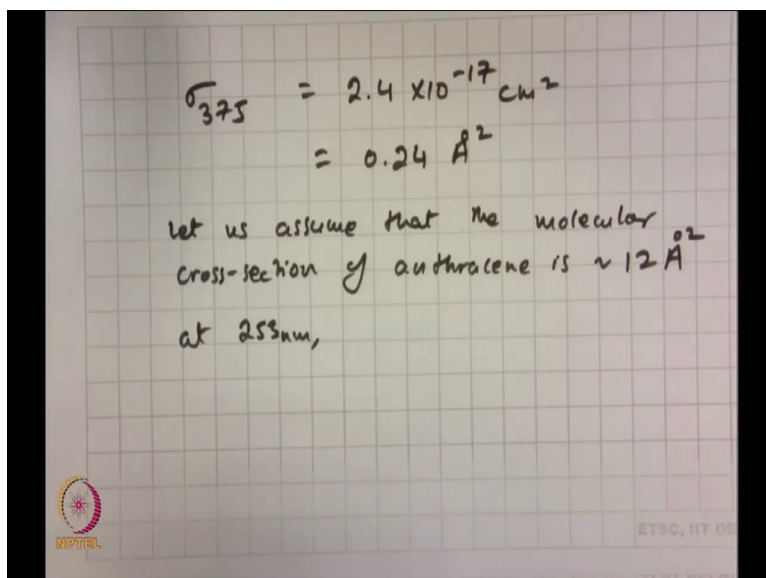 σ375 = 2.4 ×10⁻¹⁷ cm²
= 0.24 Å²
Let us assume that the molecular
cross-section of anthracene is ~ 12 Å²
at 253nm,
NPTEL
ETSC, IIT DE